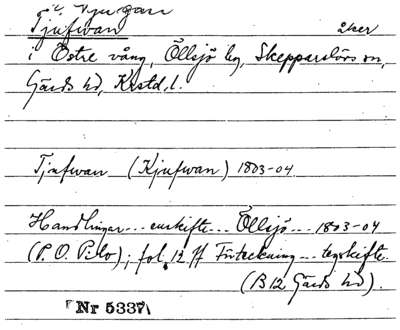 Tjufwan åker
i Östre vång, Öllsjö by, Skepparslövs sn,
Gärds hd, Krstd. l.
Tjufwan (Kjufwan) 1803-04
Handlingar --- enskifte --- Öllsjö --- 1803-04
(P. O. Pilo); fol. 12 ff Förteckning --- tegskifte
(B12 Gärds hd).
Nr 5337